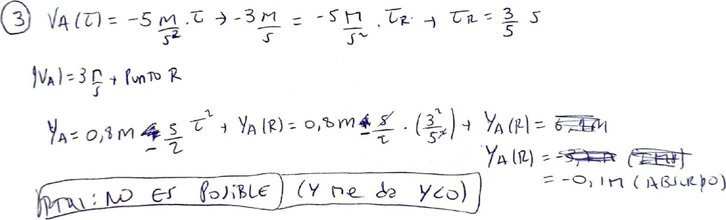 ③ VA(t) = -5 m/s² . t → -3 m/s = -5 m/s² . tR → tR = 3/5 s
|VA| = 3 m/s → PUNTO R
YA = 0,8m - 5/2 t² → YA(R) = 0,8m - 5/2 . (3²/5²) → YA(R) =
YA(R) =
= -0,1m (ABSURDO)
RTA: NO ES POSIBLE (Y ME DA Y<0)